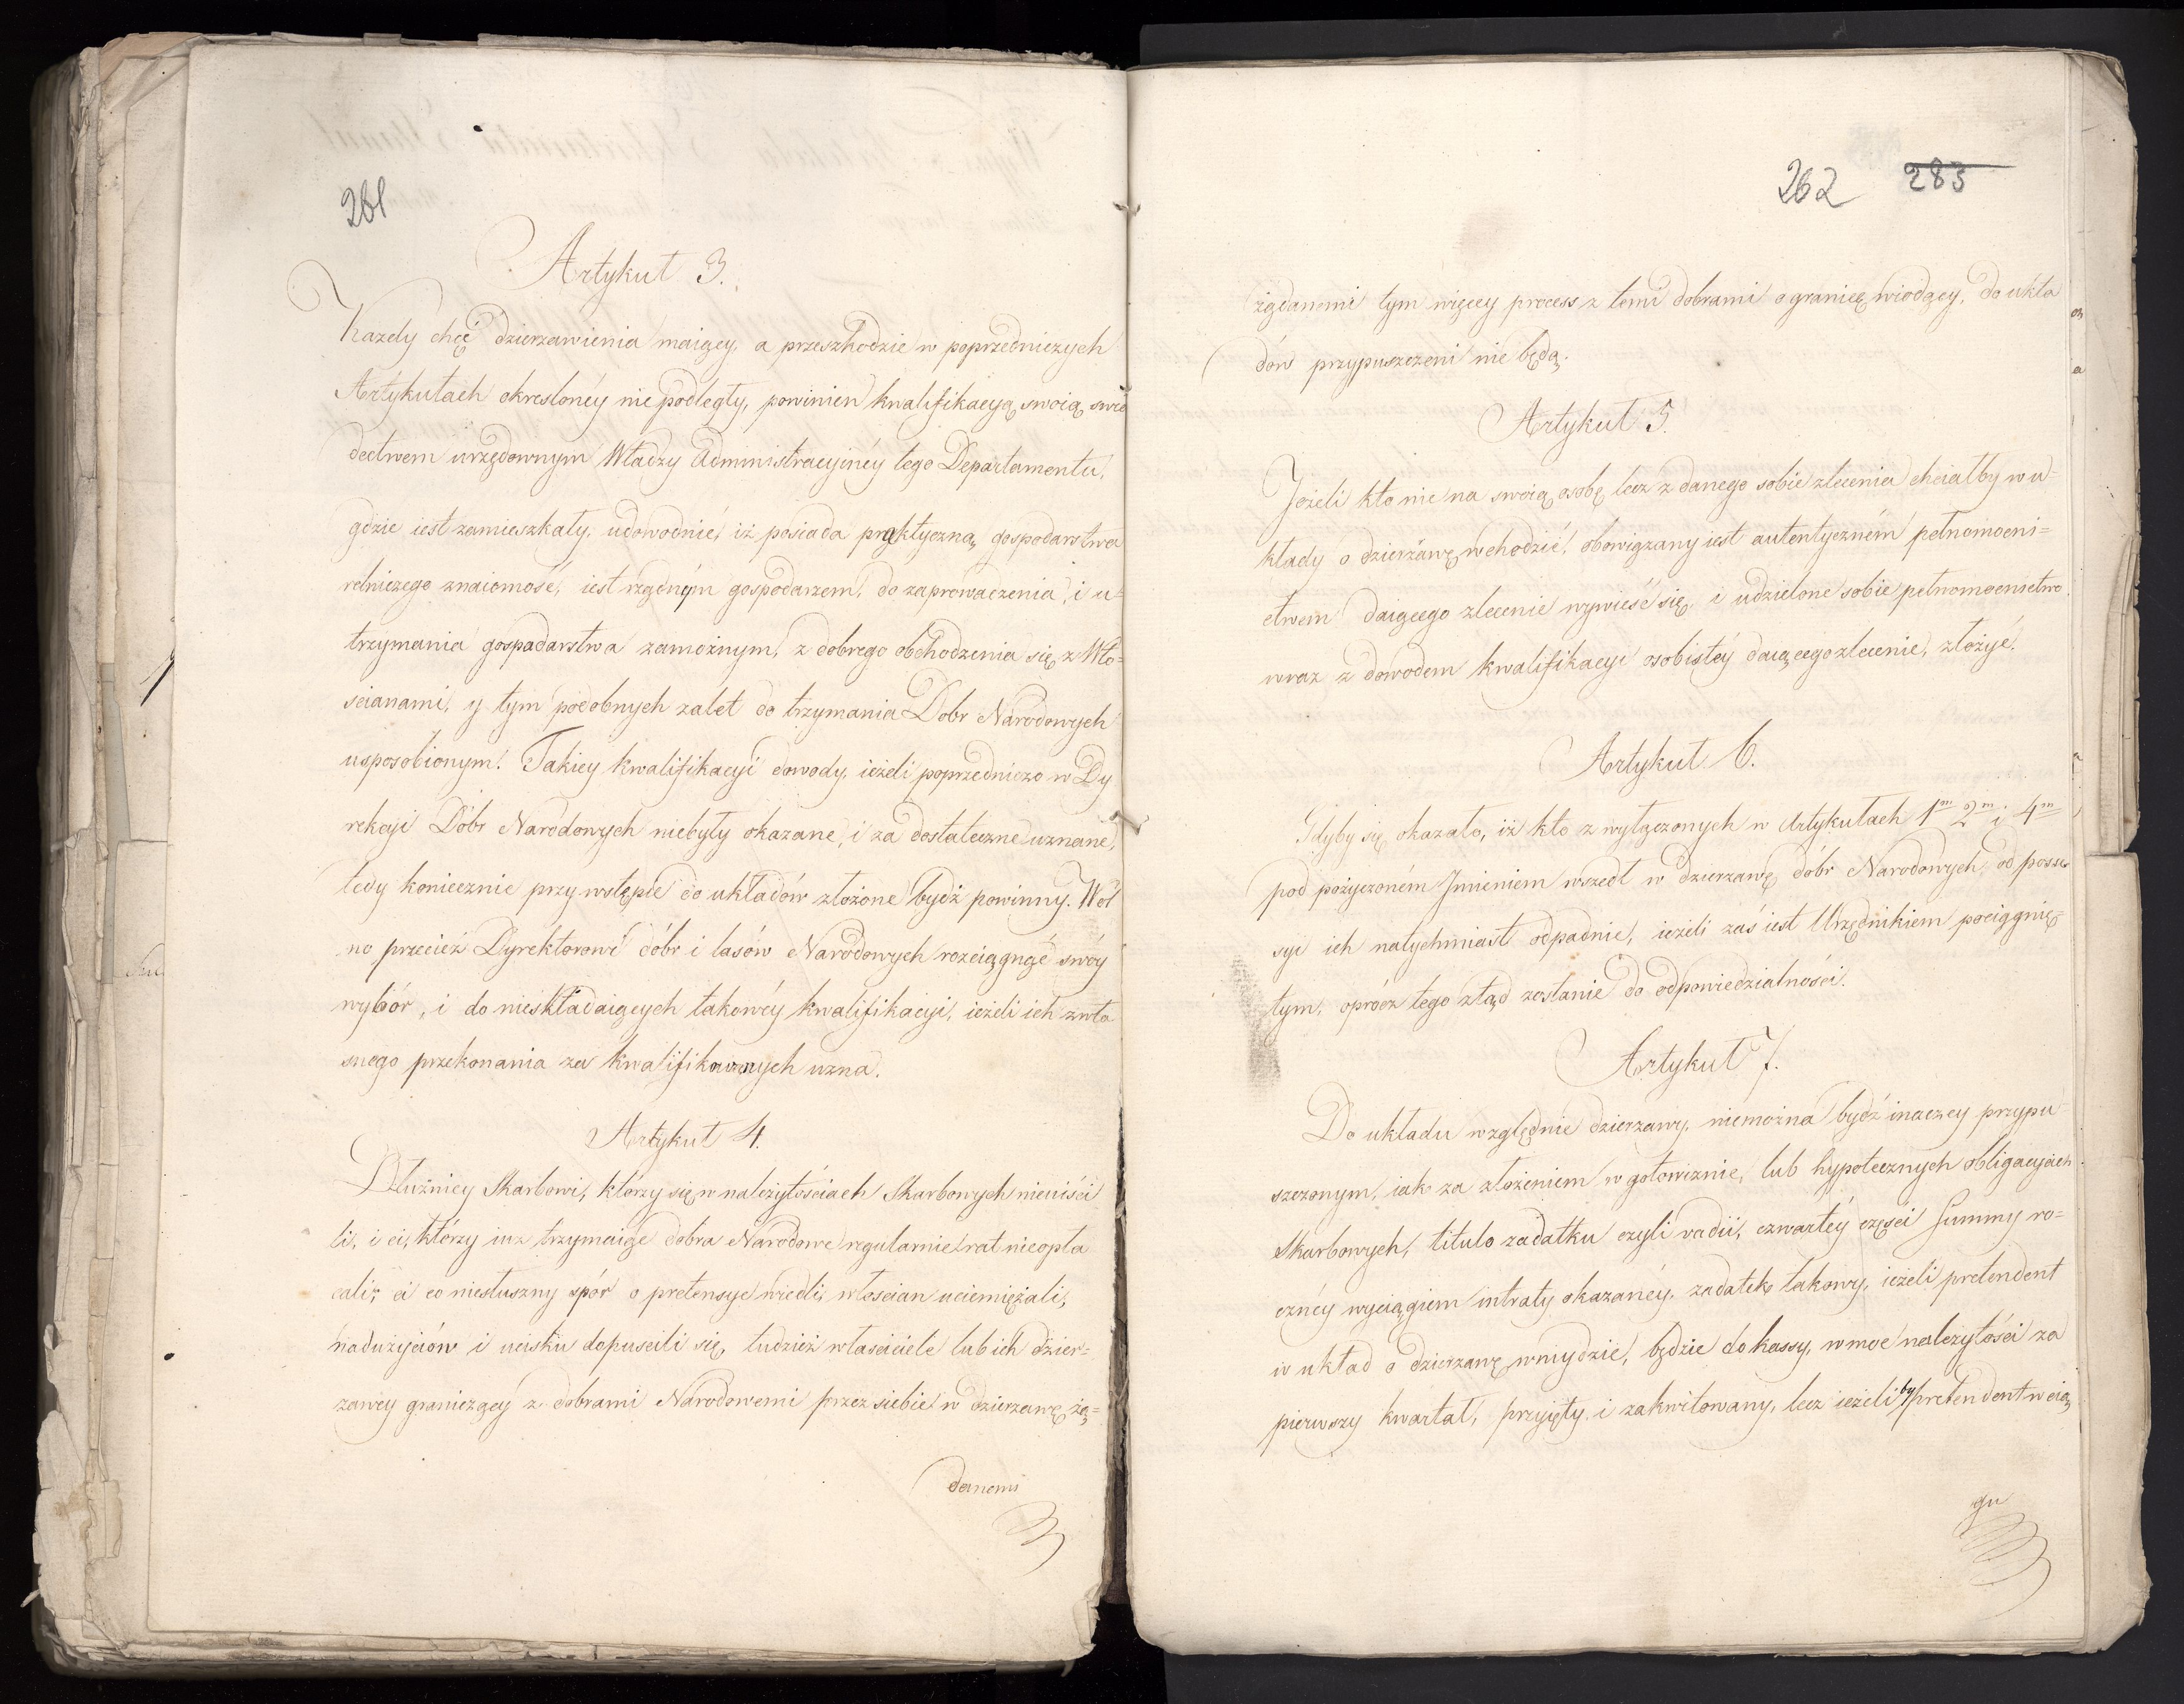 261
Artykuł 3.
Kazdy chęć dzierzawienia maiący, a przeszkodzie w poprzedniczych
Artykułach okresloney nie podległy, powinien kwalifikacyą swoią świa
dectwem urzędownym Władzy Administracyinéy tego Departamentu,
gdzie iest zamieszkały, udowodnić, iż posiada praktyczną gospodarstwa
rolniczego znaiomość, iest rządnym gospodarzem, do zaprowadzenia, i u-
trzymania gospodarstwa zamożnym, z dobrego obchodzenia się z Wło-
scianami, y tym podobnych zalet do trzymania Dobr Narodowych
usposobionym. Takiey kwalifikacyi dowody, ieżeli poprzedniczo w Dy
rekcyi Dóbr Narodowych niebyły okazane, i za dostateczne uznane,
tedy koniecznie przy wstępie do układów złożone bydź powinny. Wol
no przecież Dyrektorowi dóbr i lasów Narodowych rozciągnąć swóy
wybór, i do nieskładaiących takowéy kwalifikacyi, ieżeli ich z wła
snego przekonania za kwalifikowanych uzna.
Artykuł 4.
Dłużnicy Skarbowi, którzy się w należytościach Skarbowych nieuiści
li, i ci, którzy iuz trzymaiąc dobra Narodowe regularnie rat nieopła
cali, ci co niesłuszny spór o pretensye wiedli, włoscian uciemiężali,
nadużyciów i ucisku dopuscili się, tudzież właściciele lub ich dzier-
zawcy graniczący z dobrami Narodowemi przez siebie w dzierzawę żą-
danemi
262 283
żądanemi tym więcey process z temi dobrami o granicę wiodący, do ukła
dów przypuszczeni nie będą.
Artykuł 5.
Jeżeli kto nie na swoią osobę lecz z danego sobie zlecenia chciałby w u-
kłady o dzierżawę wchodzić, obowiązany iest autentyczném pełnomocni-
ctwem daiącego zlecenie wywieść się, i udzielone sobie pełnomocnictwo
wraz z dowodem kwalifikacyi osobistéy daiącego zlecenie, złożyć.
Artykuł 6.
Gdyby się okazało, iż kto z wyłączonych w Artykułach 1m 2m i 4m
pod pożyczoném Jmieniem wszedł w dzierzawę dóbr Narodowych, od posses
syi ich natychmiast odpadnie, ieżeli zaś iest Urzędnikiem pociągnię-
tym, oprócz tego ztąd zostanie do odpowiedzialności.
Artykuł 7.
Do układu względnie dzierzawy, niemożna bydź inaczey przypu-
szczonym, iak za złożeniem w gotowiznie, lub hypotecznych obligacyach
Skarbowych, titulo zadatku czyli vadii, czwartéy części Summy ro-
cznéy wyciągiem intraty okazanéy, zadatek takowy, ieżeli pretendent
w układ o dzierzawę wniydzie, będzie do kassy, w moc należytości za
pierwszy kwartał, przyięty i zakwitowany, lecz ieżeli by pretendent w cią
gu